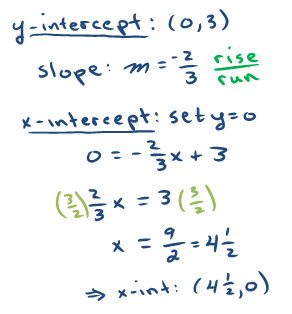 y-intercept: (0,3)
slope: m = -2/3 rise/run
x-intercept: set y=0
0 = -2/3 x + 3
(3/2) 2/3 x = 3 (3/2)
x = 9/2 = 4 1/2
⇒ x-int: (4 1/2, 0)